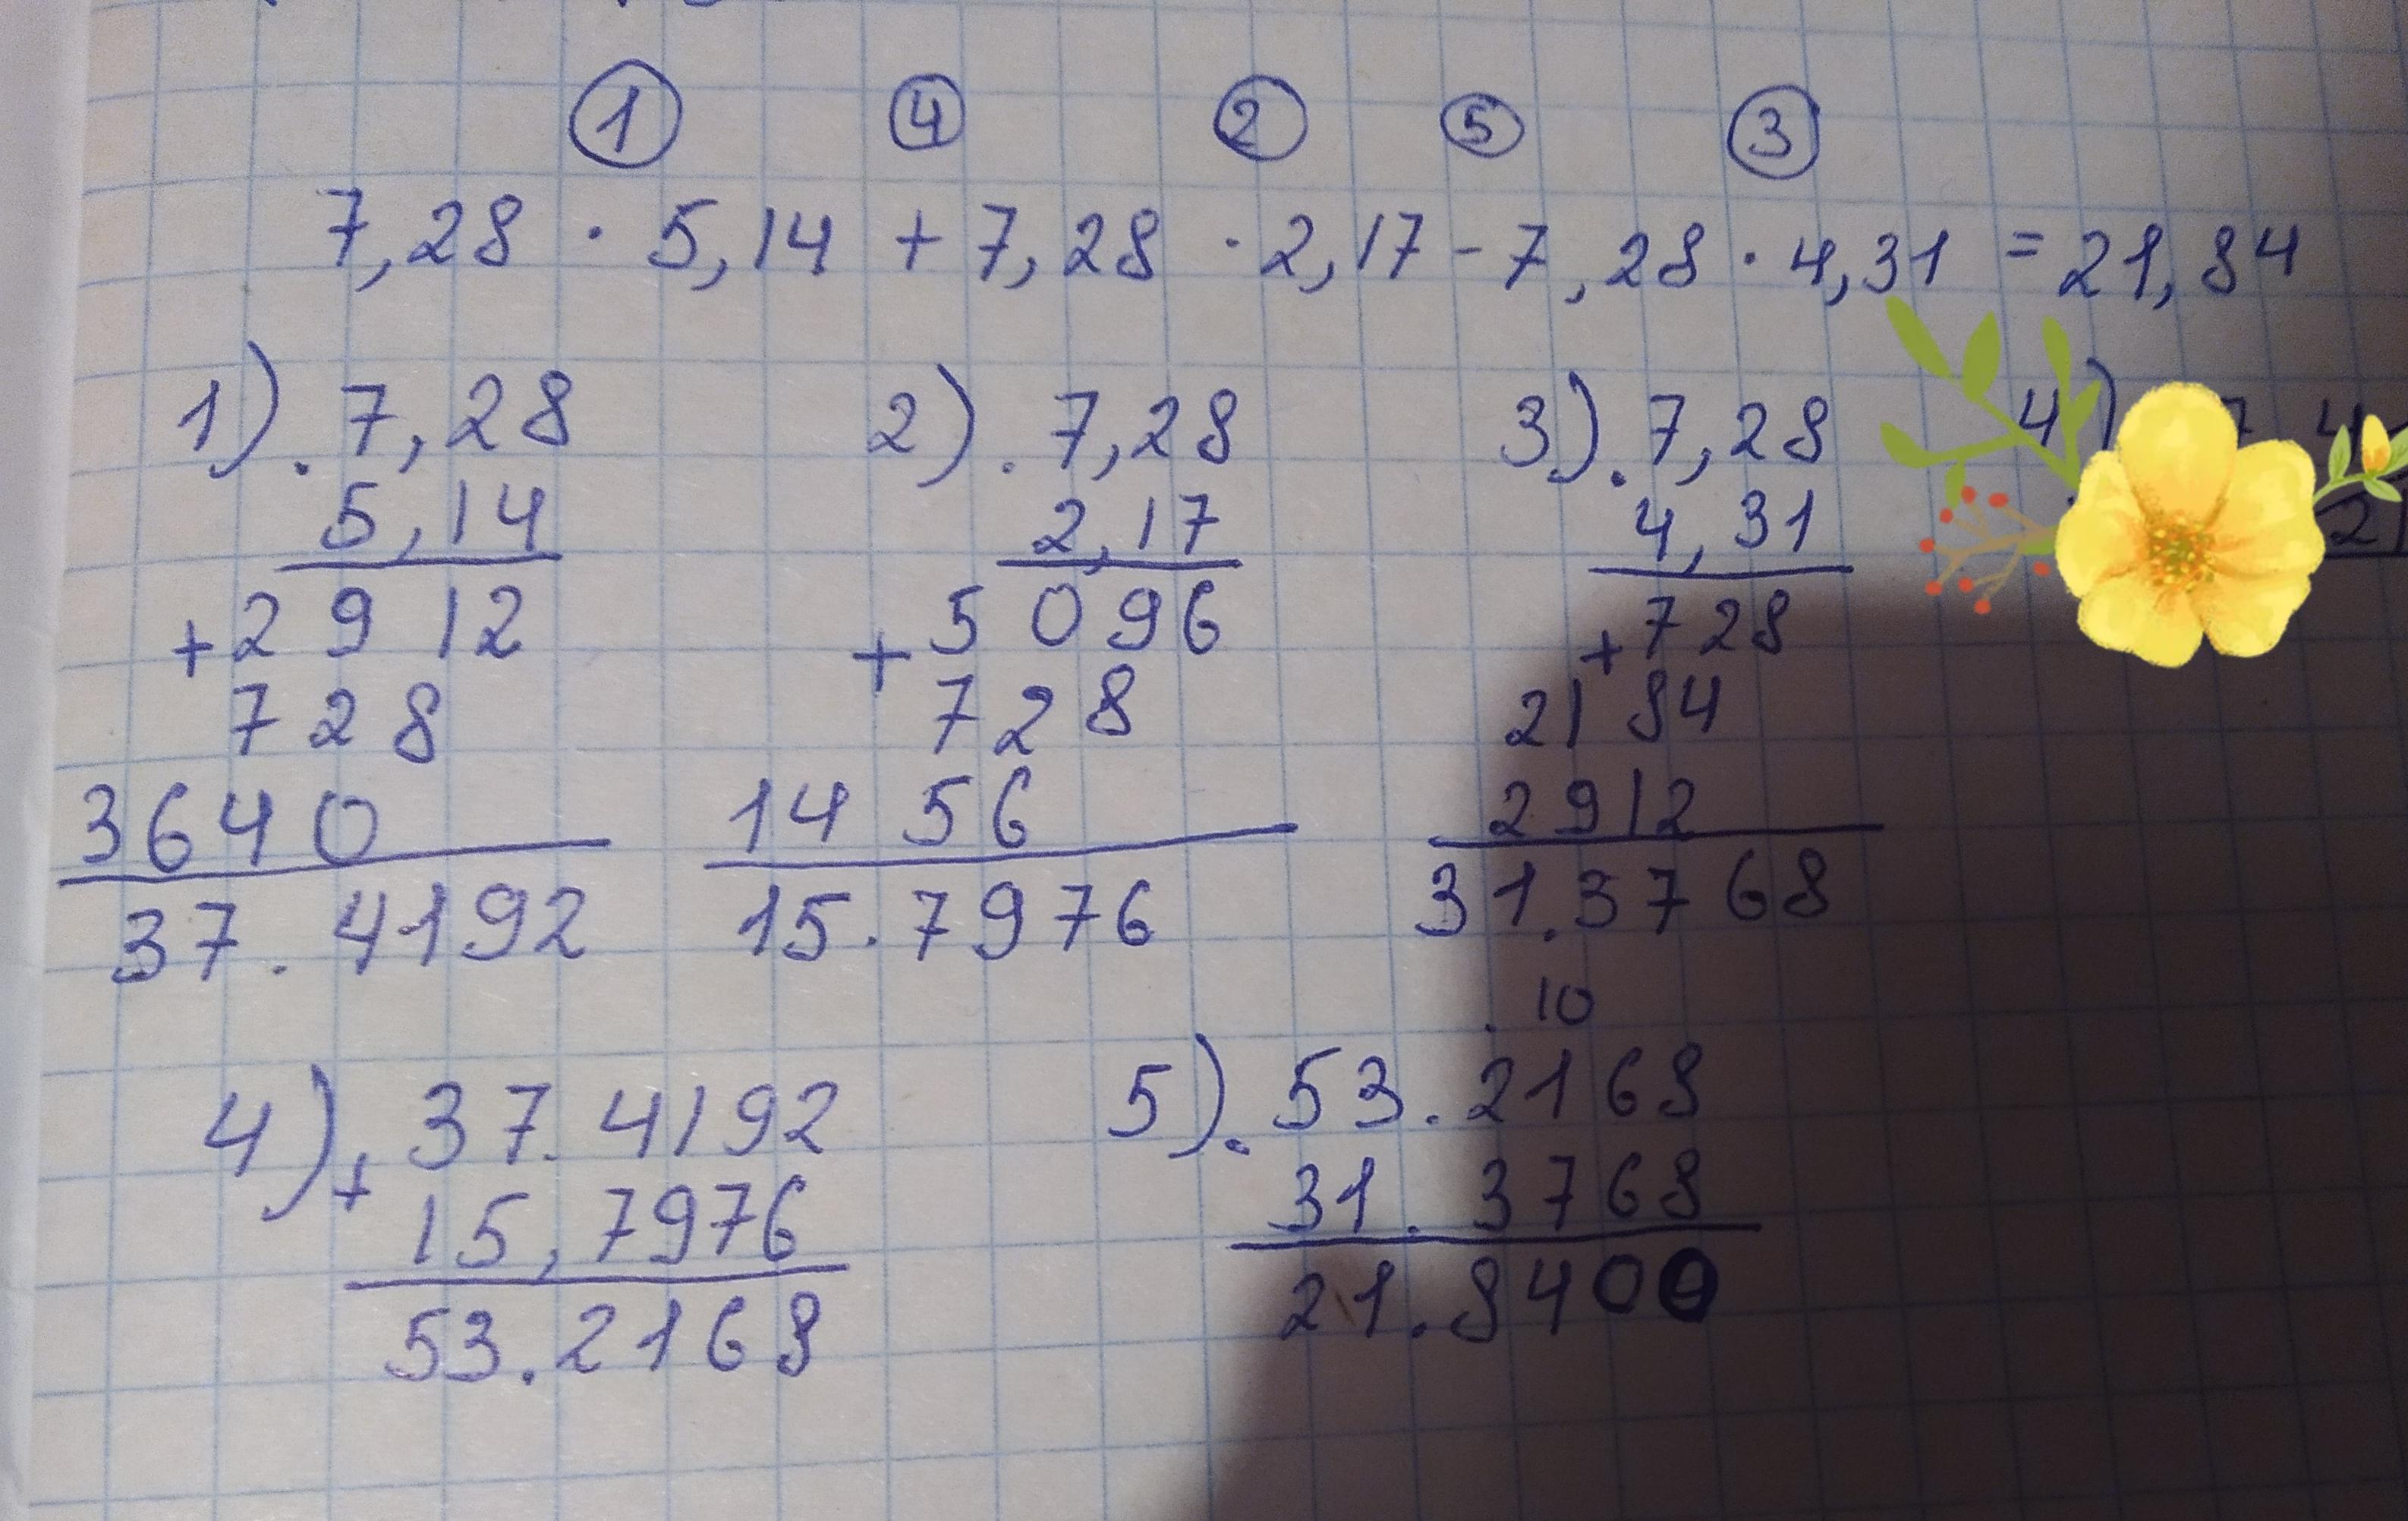 1 4 2 5 3
7,28 · 5,14 + 7,28 · 2,17 - 7,28 · 4,31 = 21,84
1). 7,28 2). 7,28 3). 7,28 4) 7 4
5,14 2,17 4,31 2
+ 2912 + 5096 + 728
728 728 2184
3640 1456 2912
37.4192 15.7976 31.3768
. 10
4) + 37.4192 5). 53.2168
15,7976 31.3768
53.2168 21.8400